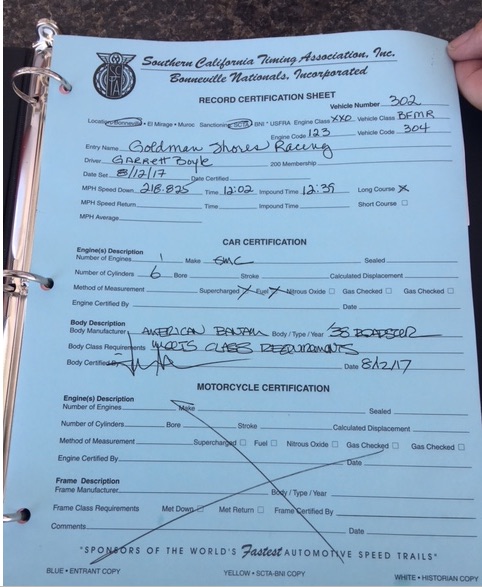 Southern California Timing Association, Inc.
Bonneville Nationals, Incorporated
SCTA
RECORD CERTIFICATION SHEET
Vehicle Number 302
Location: Bonneville • El Mirage • Muroc Sanctioning: SCTA BNI * USFRA Engine Class XXO Vehicle Class BFMR
Engine Code 123 Vehicle Code 304
Entry Name Goldman Shores Racing
Driver GARRETT Boyle 200 Membership
Date Set 8/12/17 Date Certified
MPH Speed Down 218.825 Time 12:02 Impound Time 12:39 Long Course X
MPH Speed Return Time Impound Time Short Course ☐
MPH Average
CAR CERTIFICATION
Engine(s) Description
Number of Engines 1 Make GMC Sealed
Number of Cylinders 6 Bore Stroke Calculated Displacement
Method of Measurement Supercharged X Fuel X Nitrous Oxide ☐ Gas Checked ☐ Gas Checked ☐
Engine Certified By Date
Body Description
Body Manufacturer AMERICAN BANTAM Body / Type / Year '38 ROADSTER
Body Class Requirements MEETS CLASS REQUIREMENTS
Body Certified By Date 8/12/17
MOTORCYCLE CERTIFICATION
Engine(s) Description
Number of Engines Make Sealed
Number of Cylinders Bore Stroke Calculated Displacement
Method of Measurement Supercharged ☐ Fuel ☐ Nitrous Oxide ☐ Gas Checked ☐ Gas Checked ☐
Engine Certified By Date
Frame Description
Frame Manufacturer Body / Type / Year
Frame Class Requirements Met Down ☐ Met Return ☐ Frame Certified By
Comments Date
"SPONSORS OF THE WORLD'S Fastest AUTOMOTIVE SPEED TRAILS"
BLUE • ENTRANT COPY YELLOW • SCTA-BNI COPY WHITE • HISTORIAN COPY